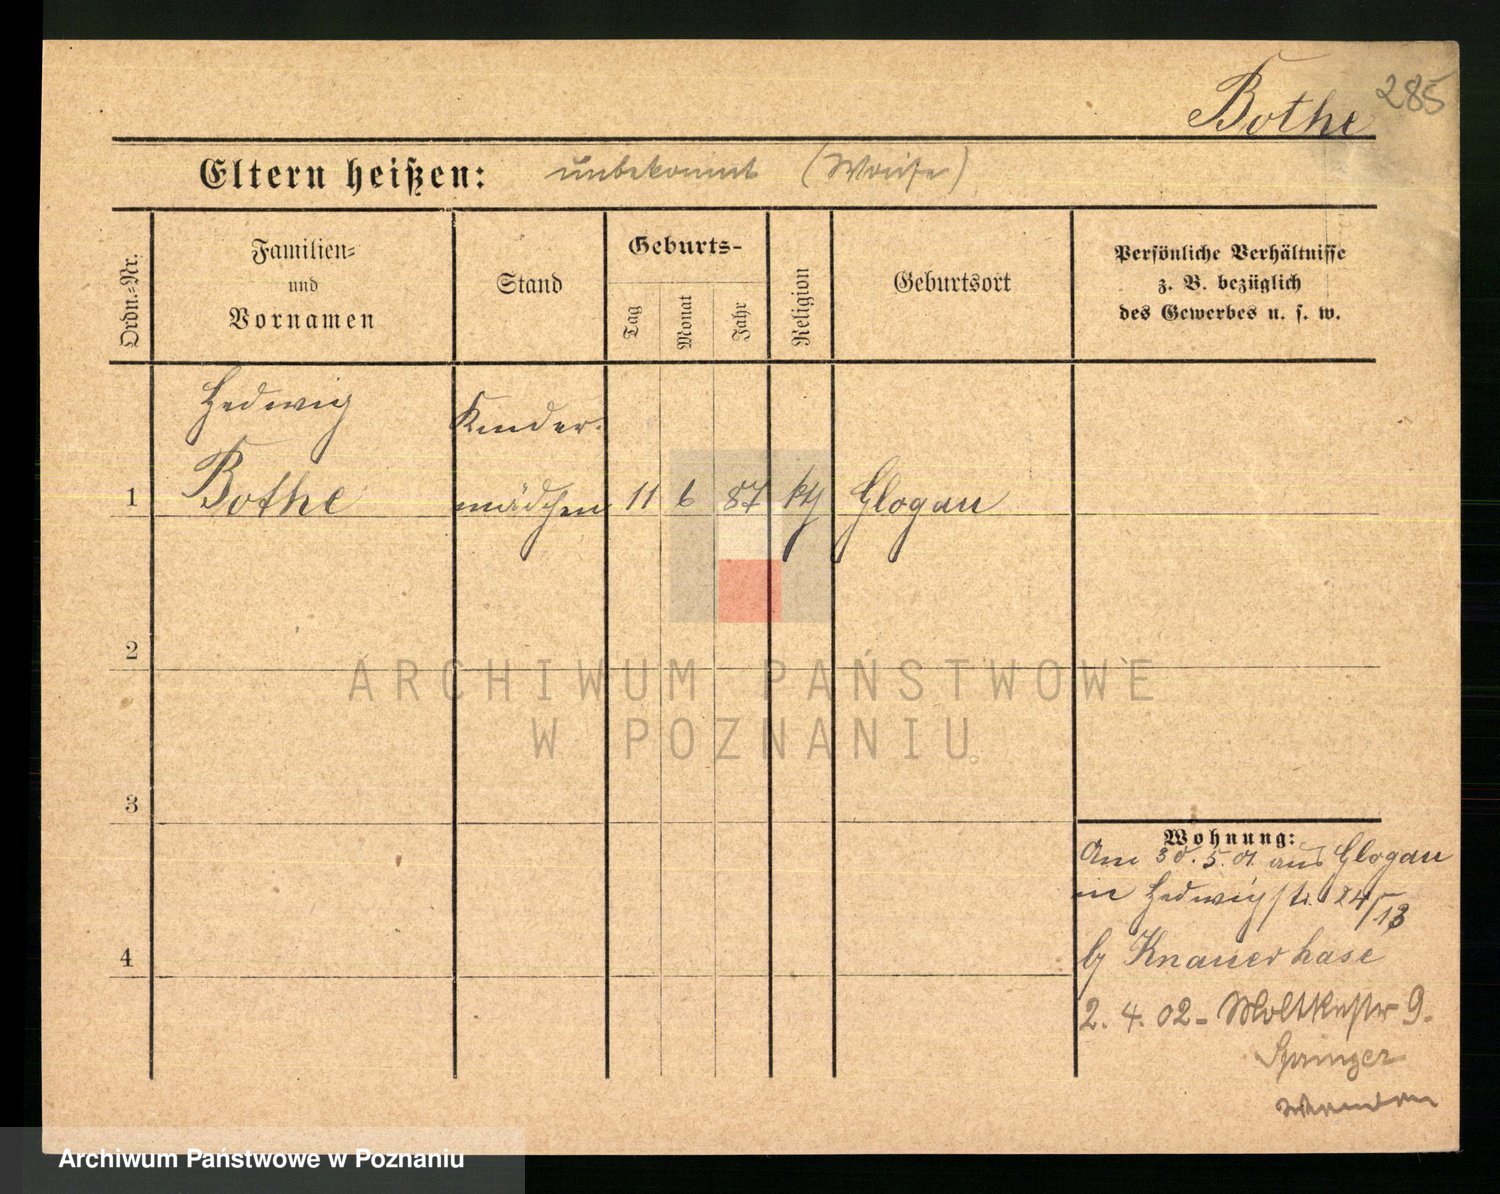 285
Bothe
Eltern heißen: unbekannt (Waise)
Ordn.-Nr.
Familien-
und
Vornamen
Stand
Geburts-
Tag
Monat
Jahr
Religion
Geburtsort
Persönliche Verhältnisse
z. B. bezüglich
des Gewerbes u. s. w.
Hedwig Kinder-
1 Bothe mädchen 11 6 87 kth Glogau
2
3
4
Wohnung:
Am 30.5.01. aus Glogau
in Hedwigstr. 24/13
by Knauerhase
2. 4. 02 - Moltkestr 9.
Springer
wenden
ARCHIWUM PAŃSTWOWE
W POZNANIU
Archiwum Państwowe w Poznaniu